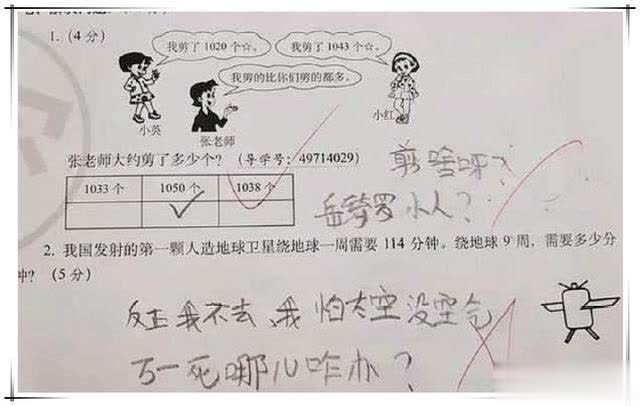 1. (4分)
我剪了1020个☆。
我剪了1043个☆。
我剪的比你们剪的都多。
小英
张老师
小红
张老师大约剪了多少个? (导学号: 49714029)
1033个 1050个 1038个
✓
剪啥呀?
岳绮罗小人?
2. 我国发射的第一颗人造地球卫星绕地球一周需要114分钟。绕地球9周，需要多少分
钟? (5分)
反正我不去、我怕太空没空气
万一死哪儿咋办?